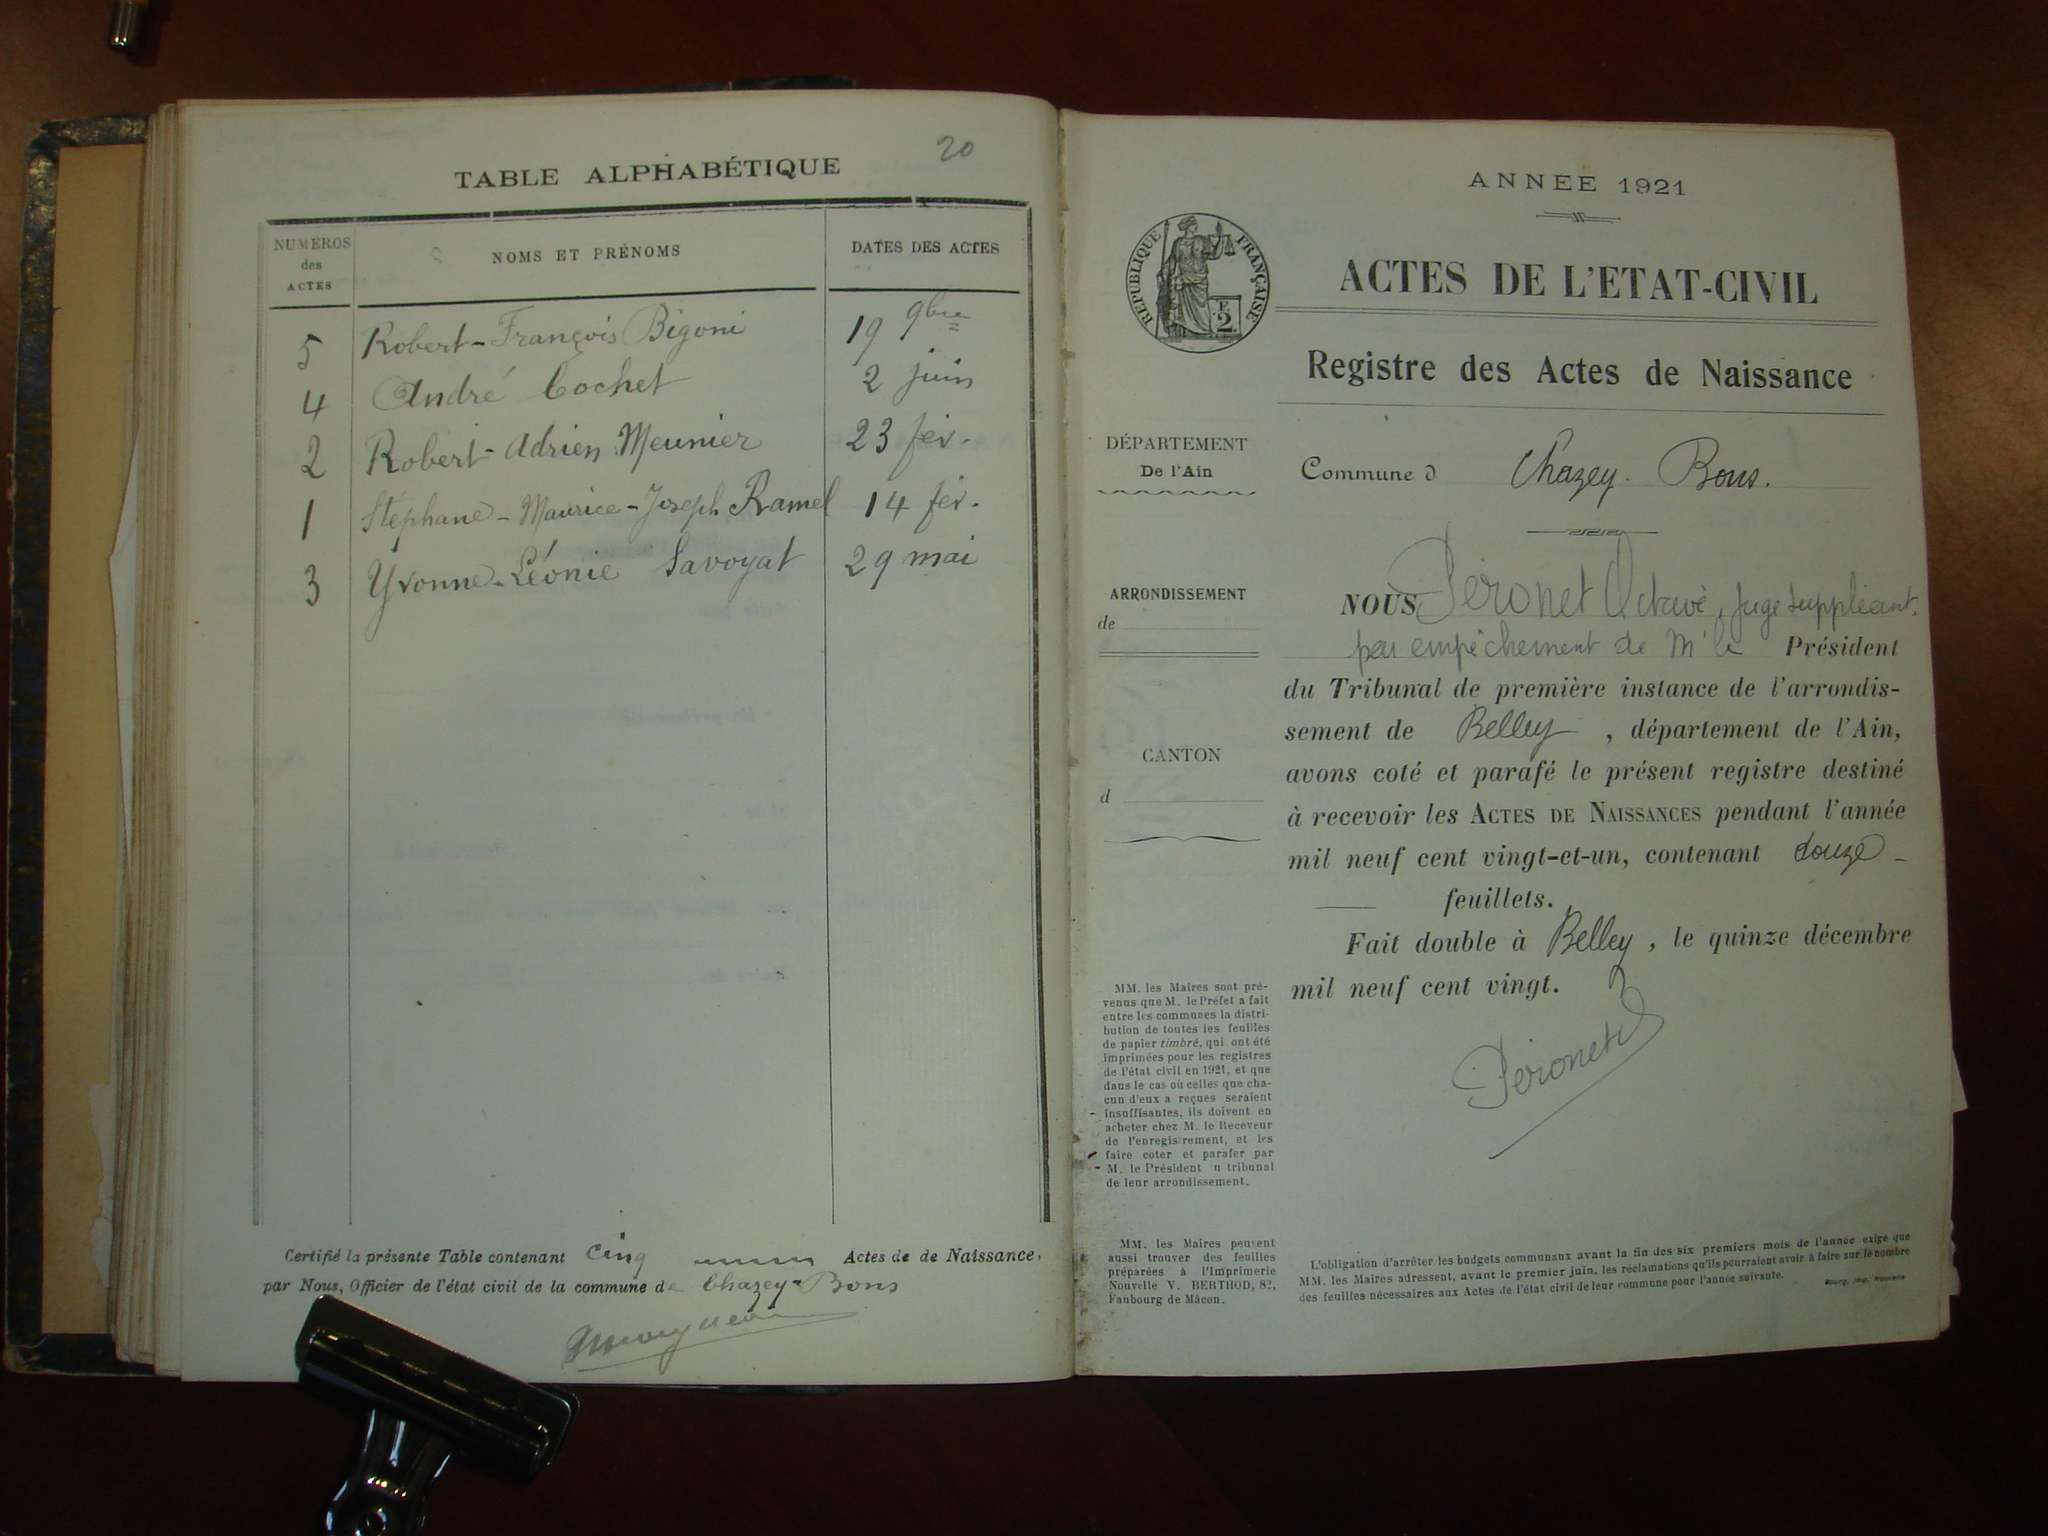 20
TABLE ALPHABÉTIQUE
NUMÉROS
des
ACTES
NOMS ET PRÉNOMS
DATES DES ACTES
5 Robert-François Bigoni 19 9bre
4 André Cochet 2 juin
2 Robert-Adrien Meunier 23 fév.
1 Stéphane-Maurice-Joseph Ramel 14 fév.
3 Yvonne-Léonie Savoyat 29 mai
Certifié la présente Table contenant cinq Actes de de Naissance,
par Nous, Officier de l'état civil de la commune de Chazey-Bons
ANNÉE 1921
RÉPUBLIQUE FRANÇAISE
F.
2.
ACTES DE L'ETAT-CIVIL
Registre des Actes de Naissance
DÉPARTEMENT
De l'Ain
Commune d Chazey-Bons.
ARRONDISSEMENT
de
CANTON
d
NOUS Péronet Octave, Juge suppléant,
par empêchement de Mr le Président
du Tribunal de première instance de l'arrondis-
sement de Belley, département de l'Ain,
avons coté et parafé le présent registre destiné
à recevoir les ACTES DE NAISSANCES pendant l'année
mil neuf cent vingt-et-un, contenant douze
feuillets.
Fait double à Belley, le quinze décembre
mil neuf cent vingt.
Péronet
MM. les Maires sont pré-
venus que M. le Préfet a fait
entre les communes la distri-
bution de toutes les feuilles
de papier timbré, qui ont été
imprimées pour les registres
de l'état civil en 1921, et que
dans le cas où celles que cha-
cun d'eux a reçues seraient
insuffisantes, ils doivent en
acheter chez M. le Receveur
de l'enregistrement, et les
faire coter et parafer par
M. le Président u tribunal
de leur arrondissement.
MM. les Maires peuvent
aussi trouver des feuilles
préparées à l'Imprimerie
Nouvelle V. BERTHOD, 82,
Faubourg de Mâcon.
L'obligation d'arrêter les budgets communaux avant la fin des six premiers mois de l'année exige que
MM. les Maires adressent, avant le premier juin, les réclamations qu'ils pourraient avoir à faire sur le nombre
des feuilles nécessaires aux Actes de l'état civil de leur commune pour l'année suivante.
Bourg, Imp. Nouvelle